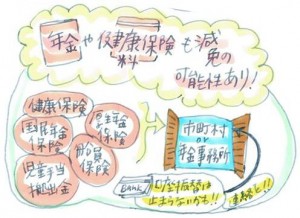 年金や健康保険も減
料
免の
可能性あり!
健康保険
国民年金
保険
厚生年金
保険
児童手当
拠出金
船員
保険
市町村
or
年金事務所
BANK
口座振替は
止まらないかも!!
連絡を!!